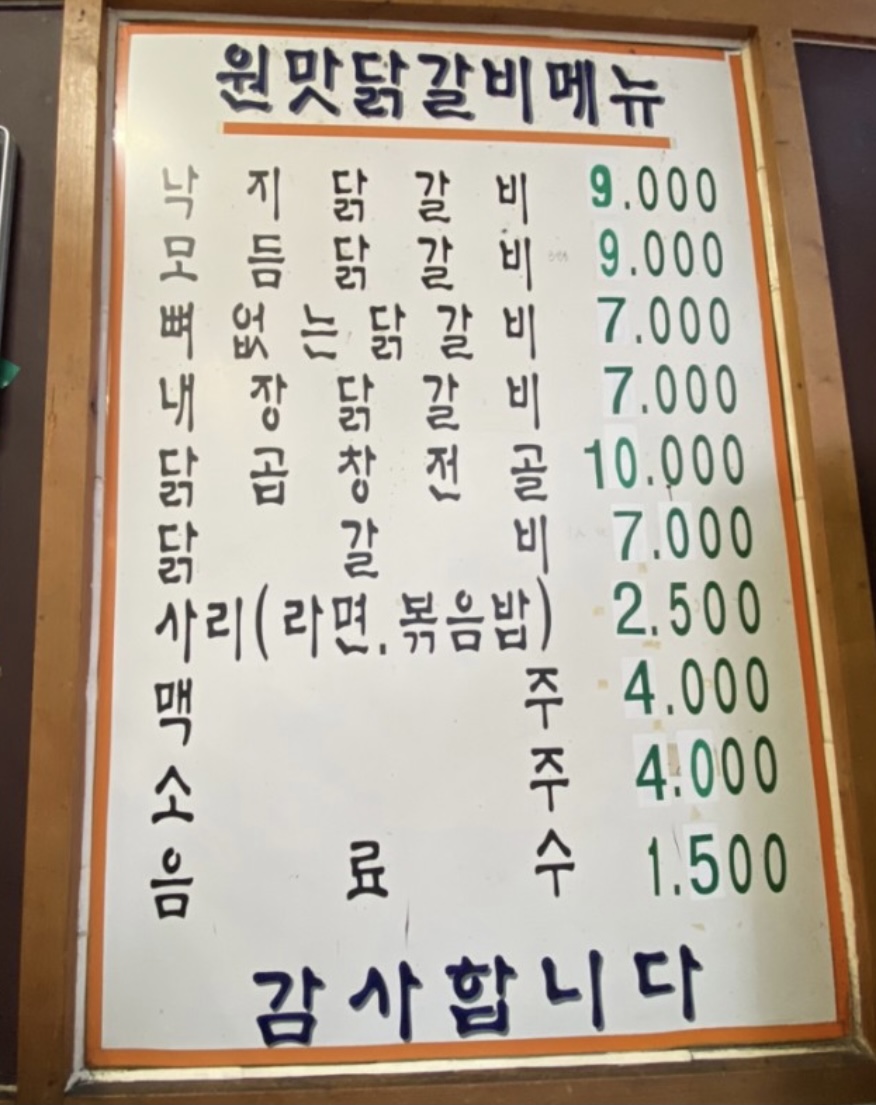 원맛닭갈비메뉴
낙지닭갈비 9.000
모듬닭갈비 9.000
뼈없는닭갈비 7.000
내장닭갈비 7.000
닭곱창전골 10.000
닭갈비 7.000
사리(라면.볶음밥) 2.500
맥주 4.000
소주 4.000
음료수 1.500
감사합니다